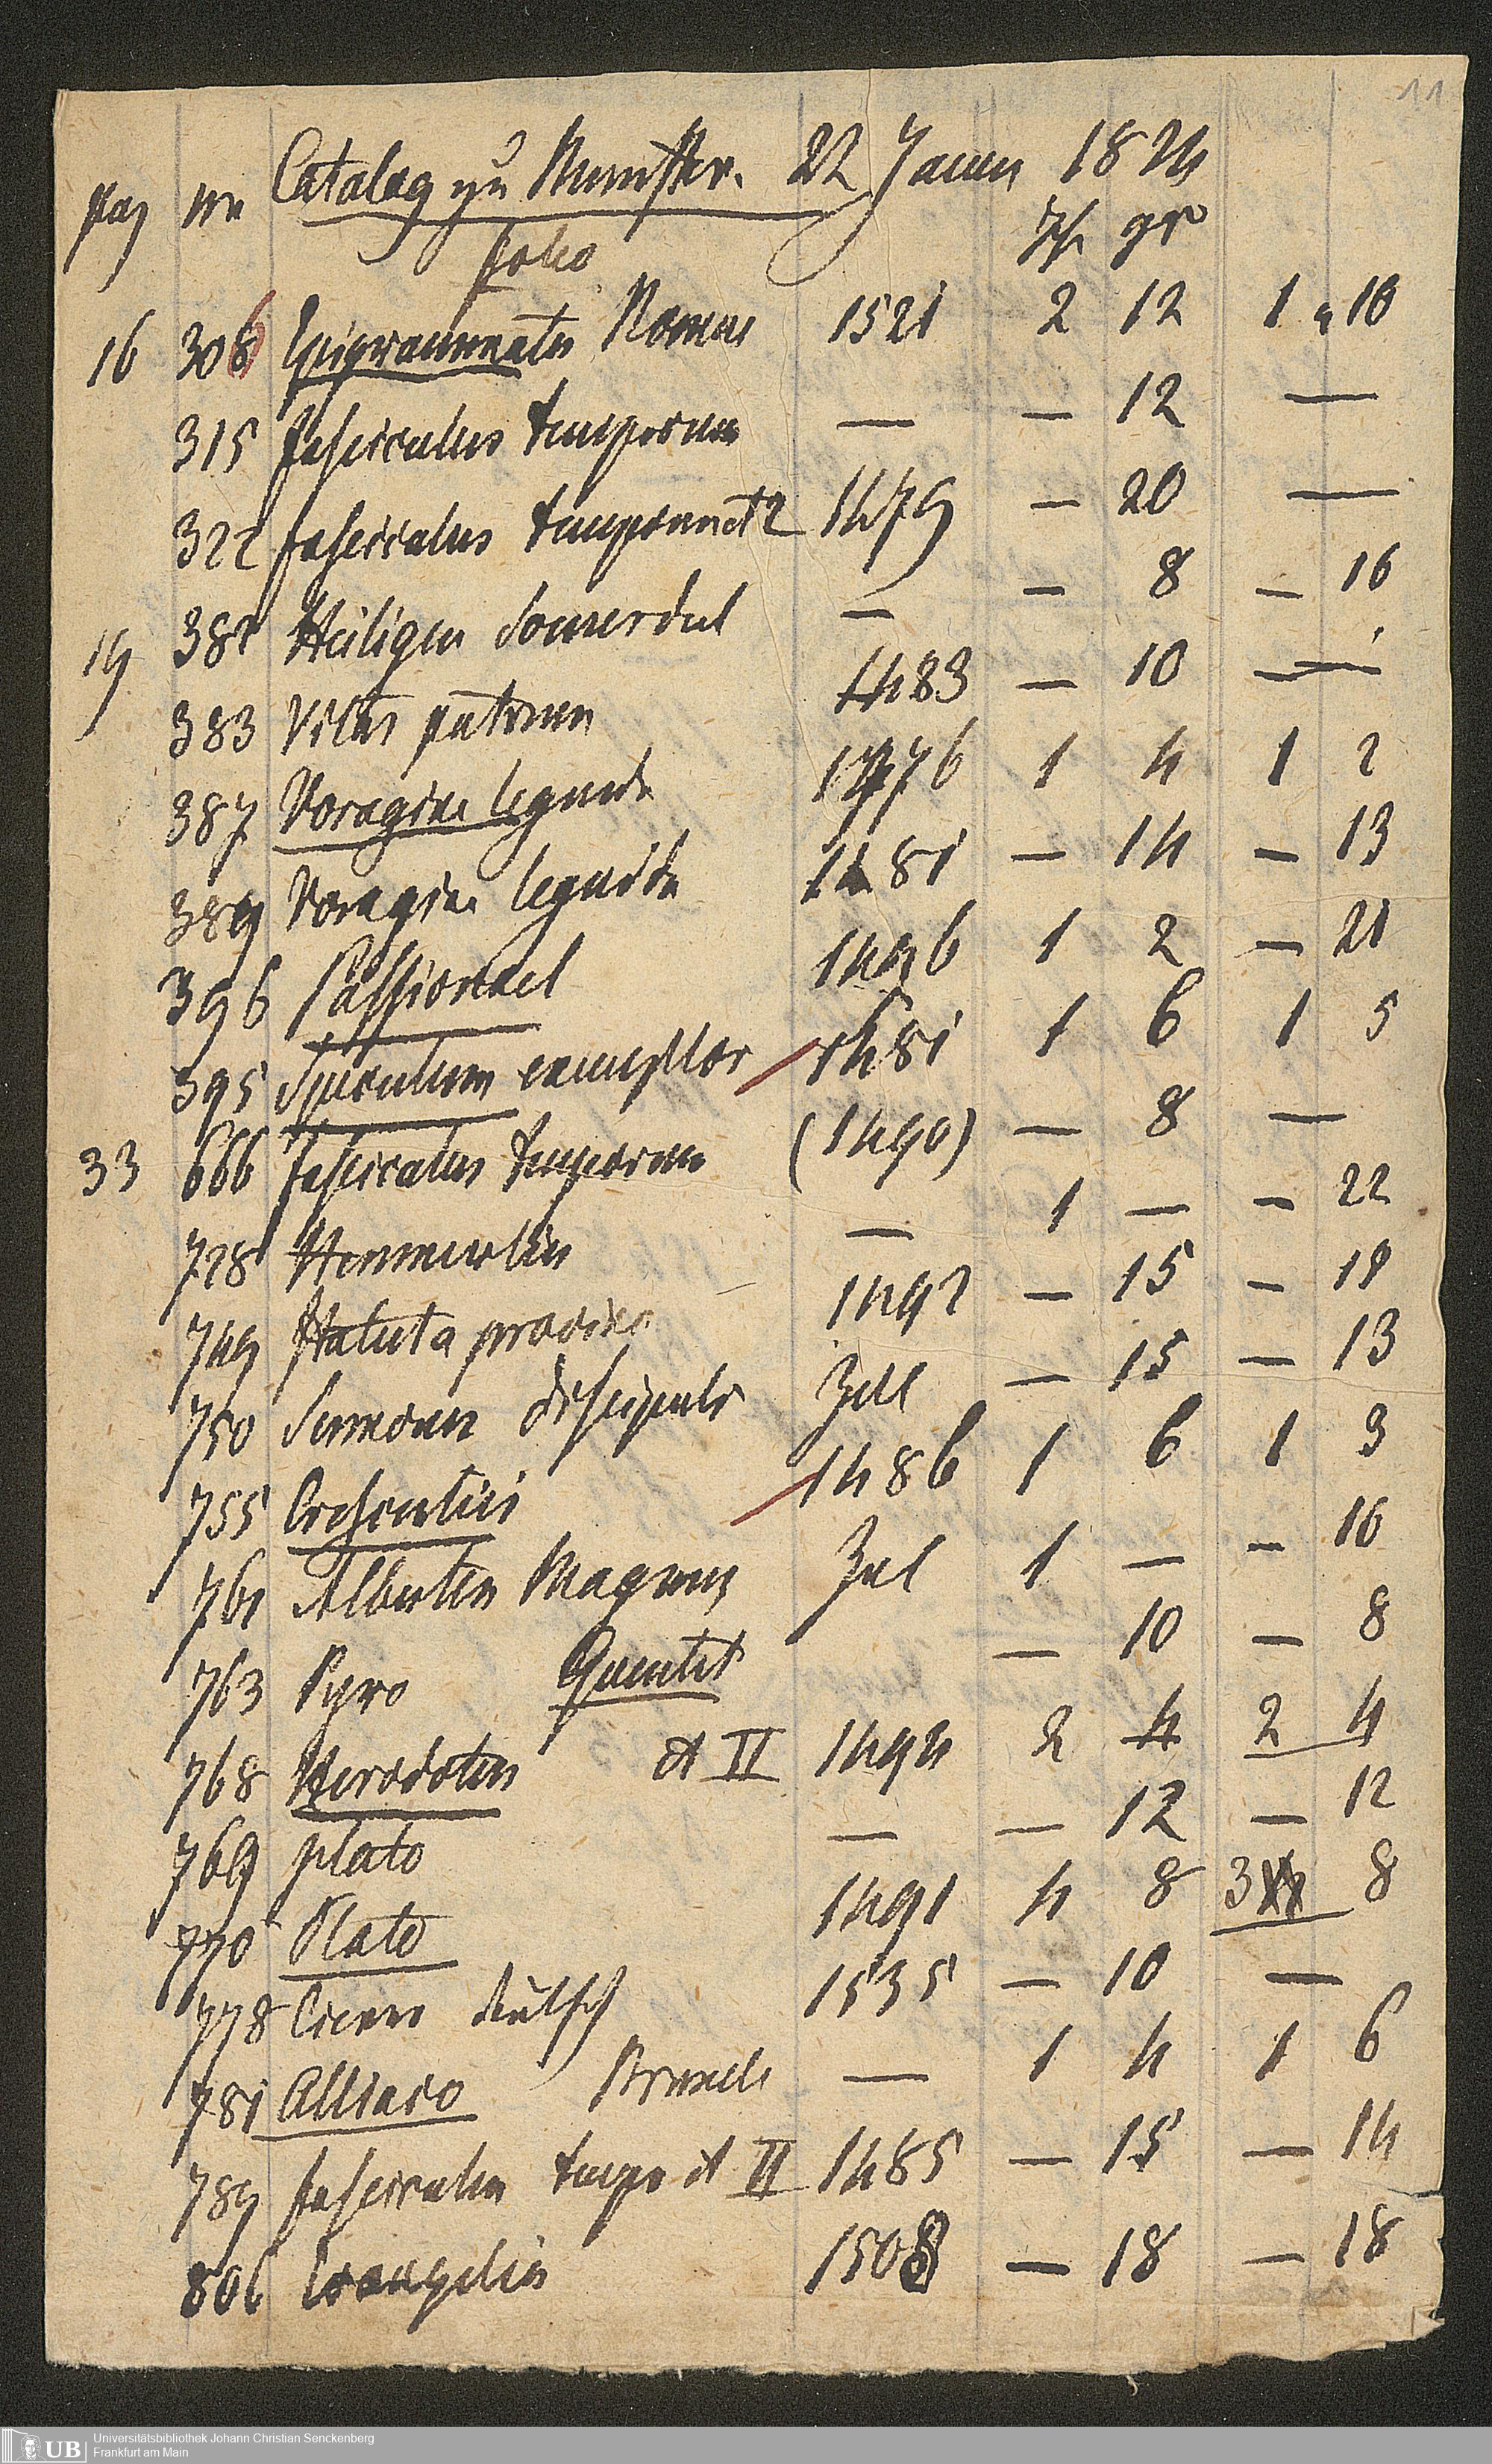 11
pag nr Catalog zu Munster. 22 Januer 1824
folio Th gr
16 306 Epigrammata Romae 1521 2 12 1 " 10
315 fasciculus temporum — — 12 —
322 fasciculus temporum et 2 1479 — 20 —
19 382 Heiligen Somerdeel — — 8 — 16
383 Vitas patrum 1483 — 10 —
387 Voragine legenda 1476 1 4 1 2
389 Voragine legenda 1481 — 14 — 13
396 Passionael 1496 1 2 — 21
395 Speculum exemplor 1481 1 6 1 5
33 666 fasciculus temporum (1490) — 8 —
728 Hemmerlin — 1 — — 22
749 Statuta provinc 1492 — 15 — 19
750 Sermones discipuli Zell — 15 — 13
755 Crescentiis 1486 1 6 1 3
761 Albertus Magnus Zel 1 — — 16
763 Pyro Quentel — 10 — 8
768 Herodotus et II 1494 2 4 2 4
769 plato — — 12 — 12
770 Plato 1491 4 8 3 8
778 Cicero deutsch 1535 — 10 —
781 Alliaco Bruxelle — 1 4 1 6
789 fasciculus tempo et II 1485 — 15 — 14
806 Evangelien 1508 — 18 — 18
UB Universitätsbibliothek Johann Christian Senckenberg
Frankfurt am Main